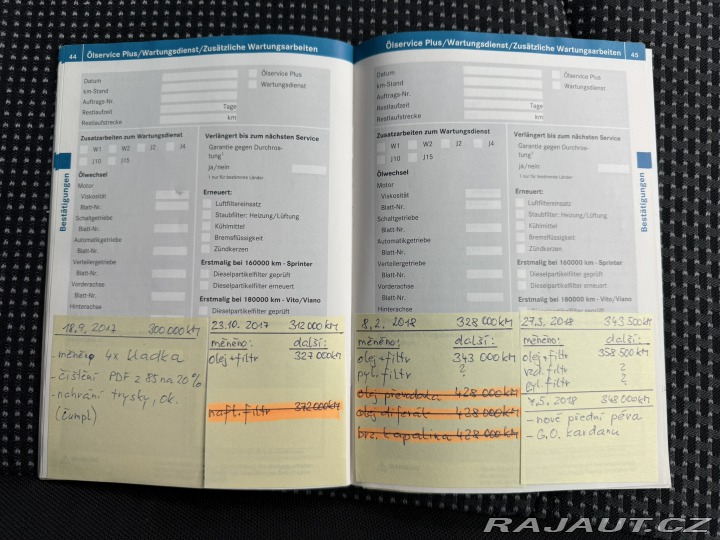 44 Ölservice Plus/Wartungsdienst/Zusätzliche Wartungsarbeiten
Datum
km-Stand
Auftrags-Nr.
Restlaufzeit Tage
Restlaufstrecke km
Ölservice Plus
Wartungsdienst
Zusatzarbeiten zum Wartungsdienst
W1 W2 J2 J4
J10 J15
Ölwechsel
Motor
Viskosität
Blatt-Nr.
Schaltgetriebe
Blatt-Nr.
Automatikgetriebe
Blatt-Nr.
Verteilergetriebe
Blatt-Nr.
Vorderachse
Blatt-Nr.
Hinterachse
Verlängert bis zum nächsten Service
Garantie gegen Durchros-
tung¹
ja/nein
1 nur für bestimmte Länder
Erneuert:
Luftfiltereinsatz
Staubfilter: Heizung/Lüftung
Kühlmittel
Bremsflüssigkeit
Zündkerzen
Erstmalig bei 160000 km - Sprinter
Dieselpartikelfilter geprüft
Dieselpartikelfilter gereinigt
Erstmalig bei 180000 km - Vito/Viano
Bestätigungen
18.9. 2017 300 000 KM
- měněno 4x kladka
- čištění PDF z 85 na 20%
- nahrání trysky, ok.
(čumpl)
23.10. 2017 312 000 KM
měněno: další:
olej+filtr 327 000 KM
naft. filtr 372 000 KM
Ölservice Plus/Wartungsdienst/Zusätzliche Wartungsarbeiten 45
Datum
km-Stand
Auftrags-Nr.
Restlaufzeit Tage
Restlaufstrecke km
Ölservice Plus
Wartungsdienst
Zusatzarbeiten zum Wartungsdienst
W1 W2 J2 J4
J10 J15
Ölwechsel
Motor
Viskosität
Blatt-Nr.
Schaltgetriebe
Blatt-Nr.
Automatikgetriebe
Blatt-Nr.
Verteilergetriebe
Blatt-Nr.
Vorderachse
Blatt-Nr.
Hinterachse
Verlängert bis zum nächsten Service
Garantie gegen Durchros-
tung¹
ja/nein
1 nur für bestimmte Länder
Erneuert:
Luftfiltereinsatz
Staubfilter: Heizung/Lüftung
Kühlmittel
Bremsflüssigkeit
Zündkerzen
Erstmalig bei 160000 km - Sprinter
Dieselpartikelfilter geprüft
Dieselpartikelfilter gereinigt
Erstmalig bei 180000 km - Vito/Viano
Bestätigungen
8.2. 2018 328 000 KM
měněno: další:
olej+filtr 343 000 KM
pyl. filtr ?
olej převodka 428 000 KM
olej diferák 428 000 KM
brz. kapalina 428 000 KM
27.3. 2018 343 500 KM
měněno: další:
olej+filtr 358 500 KM
vzd. filtr ?
pyl. filtr ?
7.5. 2018 348 000 KM
- nové přední péra
- G.O. kardanu
RAJAUT.CZ